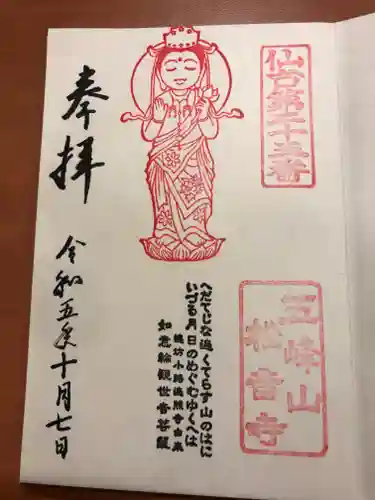 仙古第二十三番
奉拝
へだてじな遍くてらす山のはに
いづる月日のめぐむゆくへは
如意輪観世音菩薩
三峰山
松音寺
令和五年十月七日